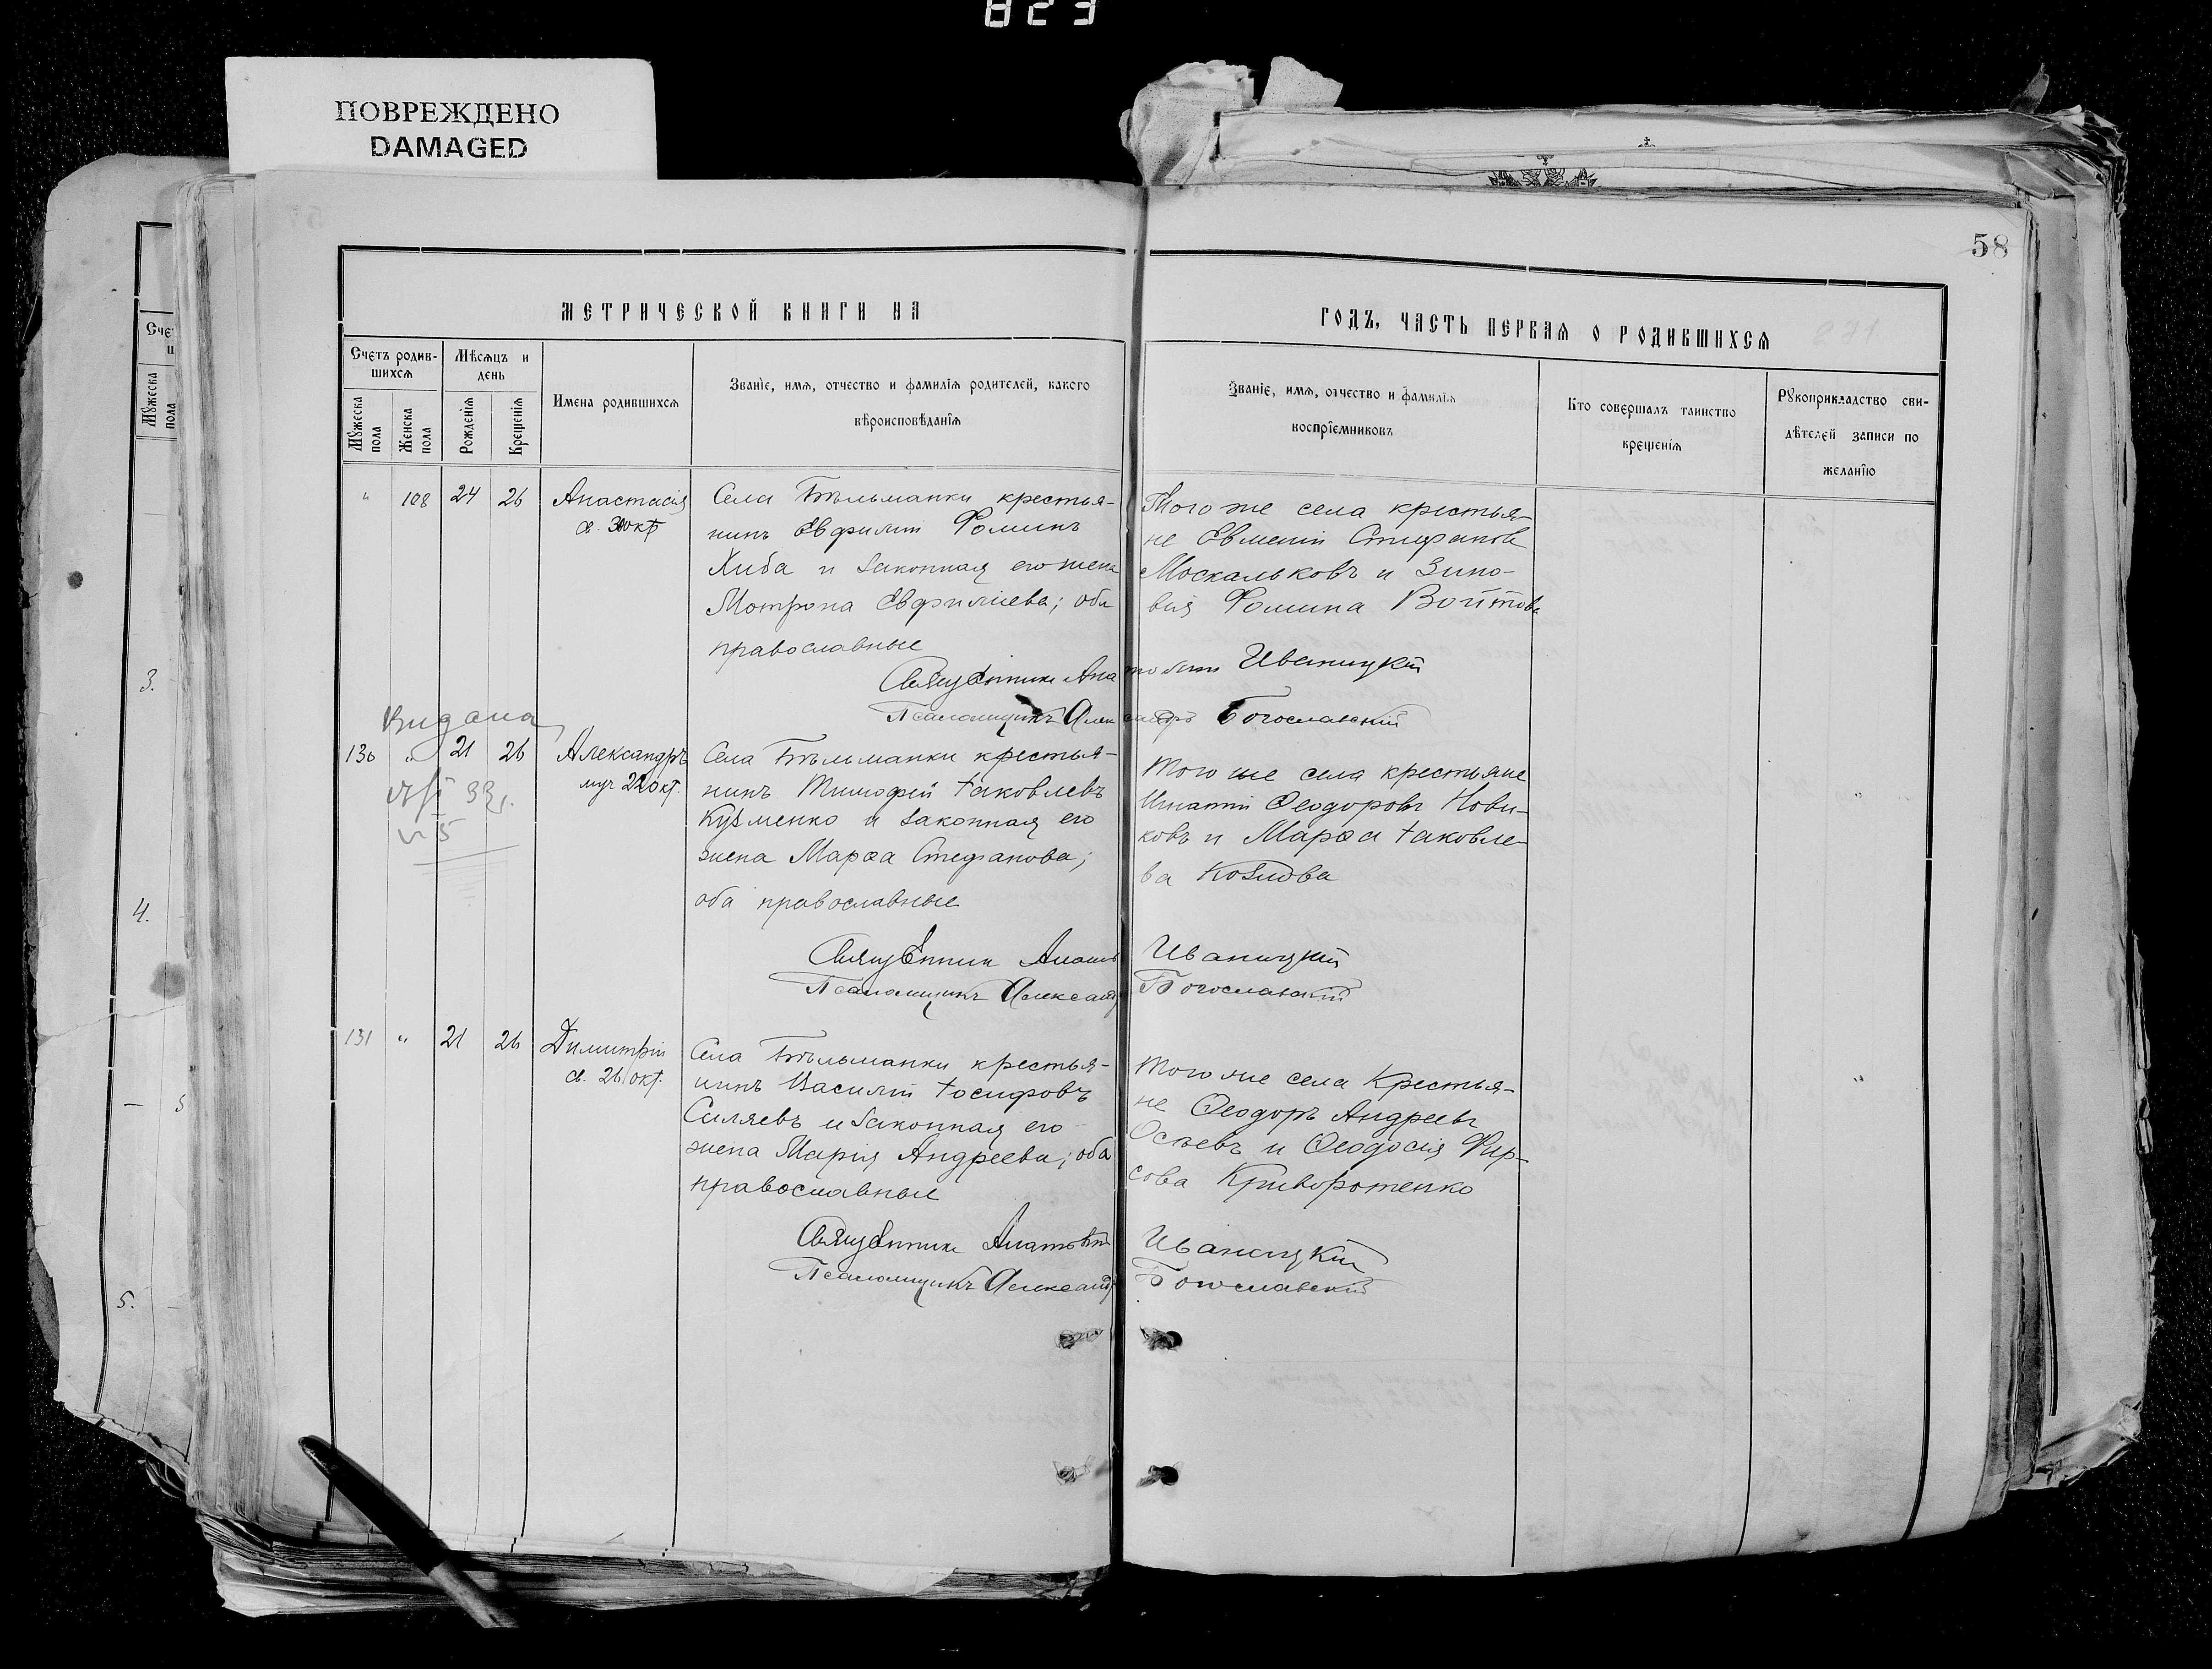 823
ПОВРЕЖДЕНО
DAMAGED
58
МЕТРИЧЕСКОЙ КНИГИ НА
ГОДЪ, ЧАСТЬ ПЕРВАЯ О РОДИВШИХСЯ
271
Счетъ родив-
шихся
Мѣсяцъ и
день
Мужеска
пола
Женска
пола
Рожденія
Крещенія
Имена родившихся
Званіе, имя, отчество и фамилія родителей, какого
вѣроисповѣданія
Званіе, имя, отчество и фамилія
воспріемниковъ
Кто совершалъ таинство
крещенія
Рукоприкладство сви-
дѣтелей записи по
желанію
Мужеска
пола
3.
4.
5.
" 108 24 26 Анастасія
св. окт
Села Бѣльманки крестья-
нинъ Евфимій Фоминъ
Хиба и законная его жена
Мотрона Евфиміева; оба
православные
Того же села крестья-
не Евменій Стефановъ
Москальковъ и Зино-
вія Фомина Войтова
Священникъ Анатолій Иваницкій
Псаломщикъ Александръ Богославскій
Видана
33
№ 5
130 " 21 26 Александръ
муч 22 окт.
Села Бѣльманки крестья-
нинъ Тимофей Іаковлевъ
Кузменко и законная его
жена Марѳа Стефанова;
оба православные
Того же села крестьяне
Игнатій Ѳеодоровъ Нови-
ковъ и Марѳа Іаковле-
ва Козлова
Священникъ Анатолій Иваницкій
Псаломщикъ Александръ Богославскій
131 " 21 26 Димитрій
св. 26 окт.
Села Бѣльманки крестья-
нинъ Василій Іосифовъ
Силяевъ и законная его
жена Марія Андреева; оба
православные
Того же села крестья-
не Ѳеодоръ Андреевъ
Осѣевъ и Ѳеодосія Фир-
сова Криворотенко
Священникъ Анатолій Иваницкій
Псаломщикъ Александръ Богославскій